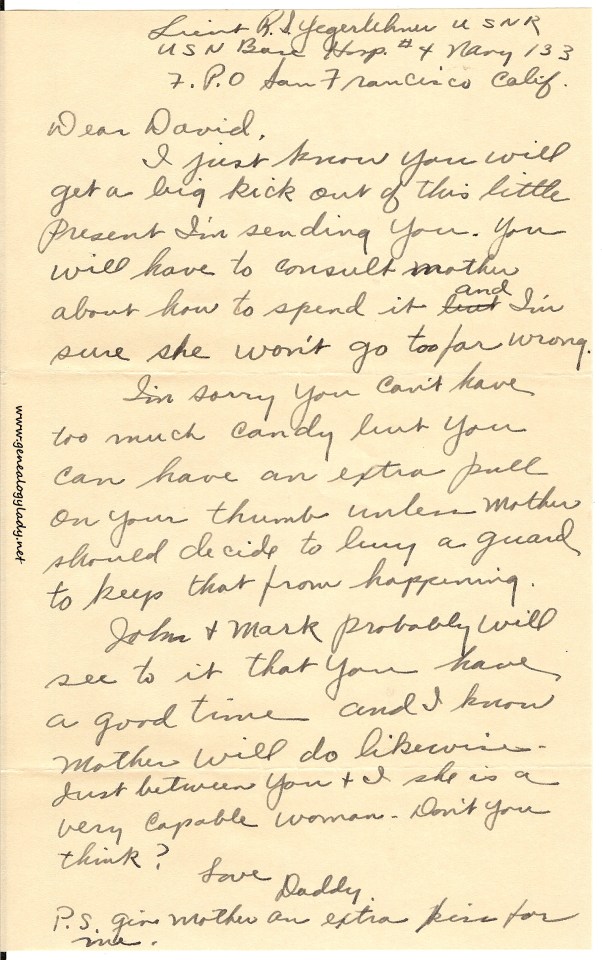 Lieut R.S. Yegerlehner USNR
USN Base Hosp. #4 Navy 133
F.P.O San Francisco Calif.
Dear David,
I just know you will
get a big kick out of this little
present I'm sending you. You
will have to consult mother
about how to spend it but and I'm
sure she won't go too far wrong.
I'm sorry you can't have
too much candy but you
can have an extra pull
on your thumb unless Mother
should decide to buy a guard
to keep that from happening.
John & Mark probably will
see to it that you have
a good time and I know
Mother will do likewise-
Just between you & I she is a
very capable woman- Don't you
think?
Love
Daddy
P.S. give Mother an extra kiss for
me.
www.genealogylady.net